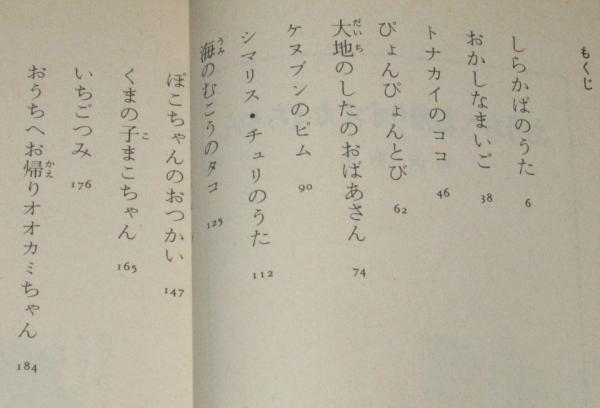 もくじ
しらかばのうた 6
おかしなまいご 38
トナカイのココ 46
ぴょんぴょんとび 62
大地のしたのおばあさん 74
ケヌプンのピム 90
シマリス・チュリのうた 112
海のむこうのタコ 125
ぽこちゃんのおつかい 147
くまの子まこちゃん 165
いちごつみ 176
おうちへお帰りオオカミちゃん 184